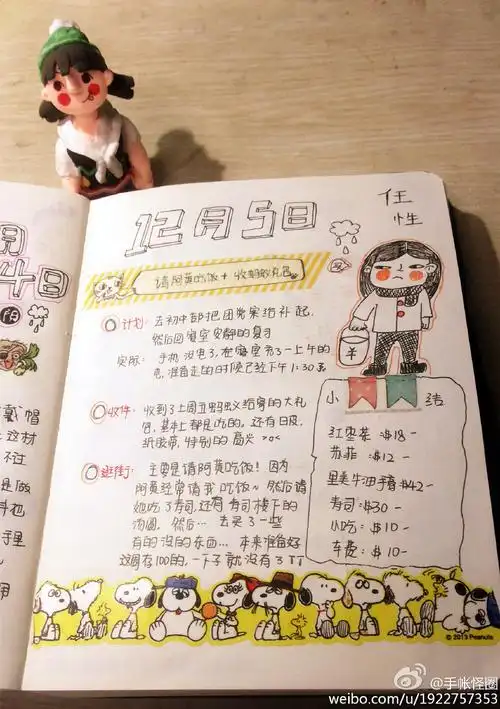 4日
阴
戴帽
这材
不过
是做
12月5日
任
性
请阿黄吃饭+收蚂蚁礼包
计划: 去初中部把团员案档补起,
然后回寝室安静的复习
实际: 手机没电了,在寝室充了一上午的
电,准备走的时候已经下午1:30
收件: 收到了上周五蚂蚁给寄的大礼
包,基本上都是吃的。还有日及,
纸胶带,特别的高兴 >o<
逛街: 主要是请阿黄吃饭!因为
阿黄经常请我吃饭~然后请
她吃了寿司,还有寿司楼下的
汤圆,然后…去买了一些
有的没的东西…本来准备好
这周存100的,一下子就没有了TT
¥
小 结
红枣茶 $18-
苏菲: $12-
里美牛油手膏$42-
寿司:$30-
小吃: $10-
车费: $10-
© 2013 Peanuts
@手帐怪圈
weibo.com/u/1922757353